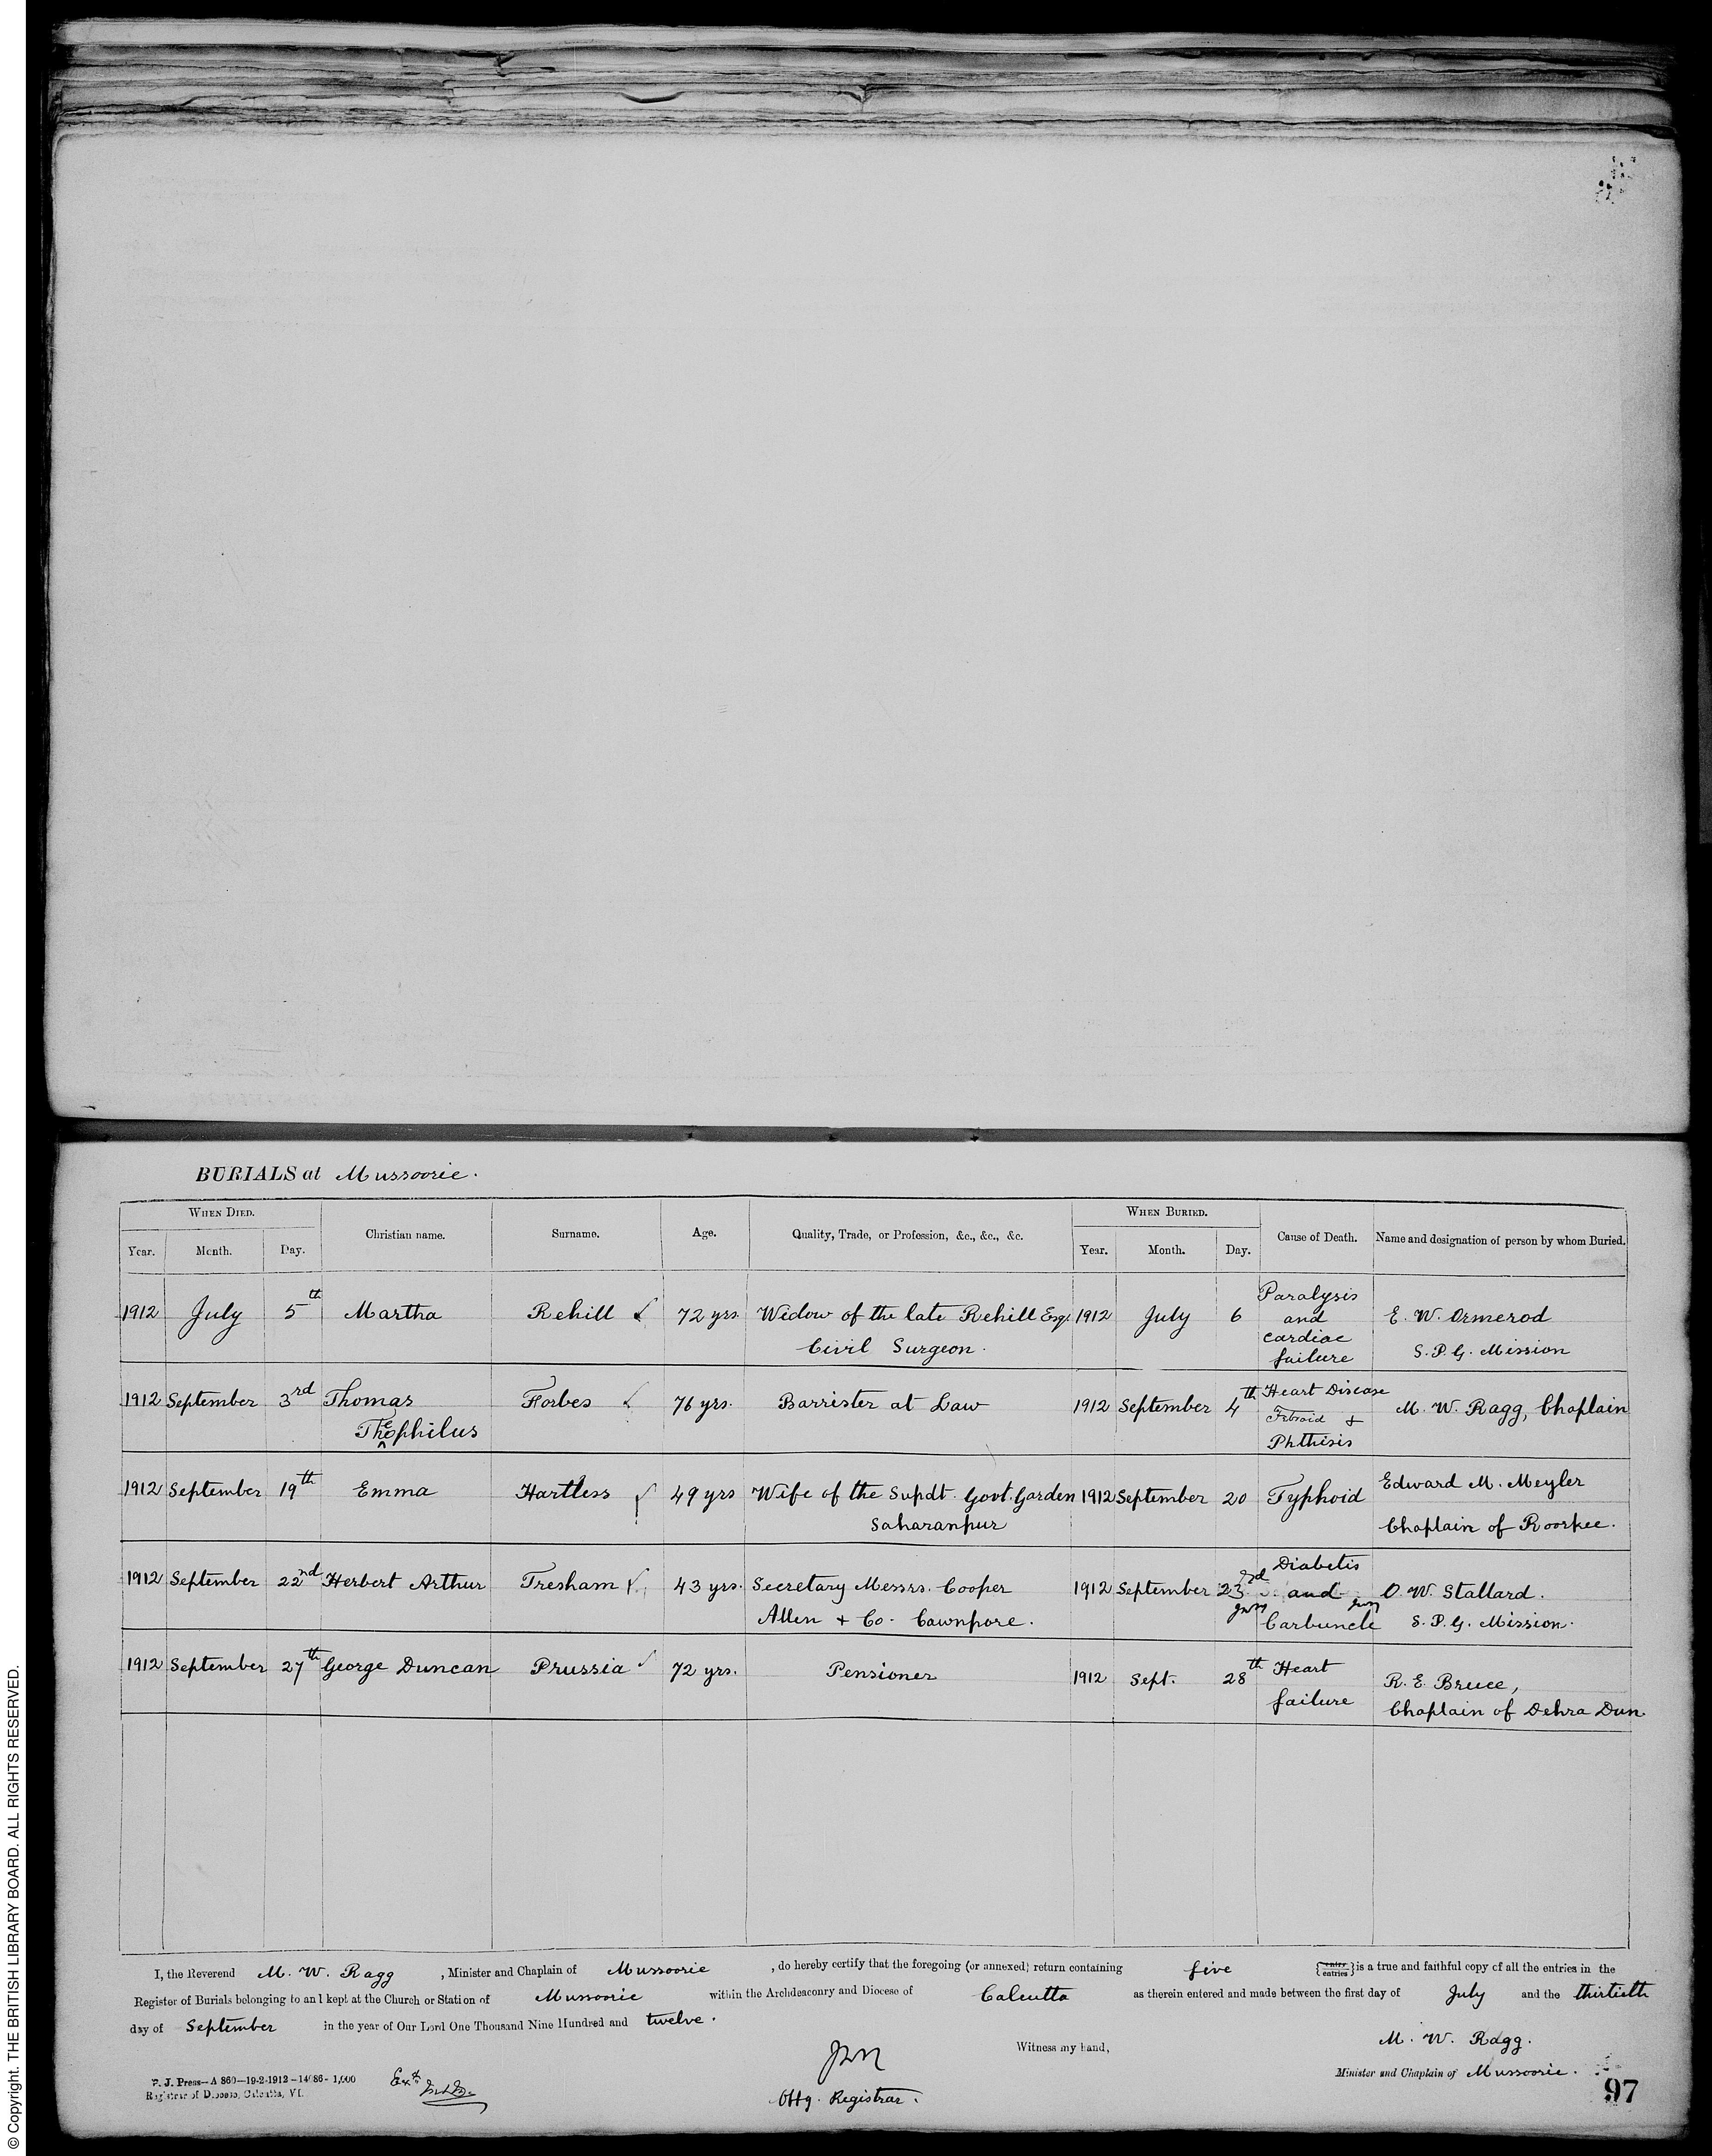 BURIALS at Mussoorie.
WHEN DIED. Christian name. Surname. Age. Quality, Trade, or Profession, &c., &c., &c. WHEN BURIED. Cause of Death. Name and designation of person by whom Buried.
Year. Month. Day. Year. Month. Day.
1912 July 5th Martha Rehill 72 yrs. Widow of the late Rehill Esqr. 1912 July 6 Paralysis and E. W. Ormerod
Civil Surgeon. cardiac failure S. P. G. Mission
1912 September 3rd Thomas Forbes 76 yrs. Barrister at Law 1912 September 4th Heart Disease M. W. Ragg, Chaplain
Theophilus Fibroid +
Phthisis
1912 September 19th Emma Hartless 49 yrs Wife of the Supdt. Govt. Garden 1912 September 20 Typhoid Edward M. Meyler
Saharanpur Chaplain of Roorkee.
1912 September 22nd Herbert Arthur Tresham 43 yrs. Secretary Messrs. Cooper 1912 September 23rd Diabetis and O. W. Stallard.
Allen + Co. Cawnpore. Carbuncle S. P. G. Mission.
1912 September 27th George Duncan Prussia 72 yrs. Pensioner 1912 Sept. 28th Heart R. E. Bruce,
failure Chaplain of Dehra Dun.
I, the Reverend M. W. Ragg, Minister and Chaplain of Mussoorie, do hereby certify that the foregoing (or annexed) return containing five {entry entries} is a true and faithful copy of all the entries in the
Register of Burials belonging to and kept at the Church or Station of Mussoorie within the Archdeaconry and Diocese of Calcutta as therein entered and made between the first day of July and the thirtieth
day of September in the year of Our Lord One Thousand Nine Hundred and twelve.
Witness my hand, M. W. Ragg.
Minister and Chaplain of Mussoorie.
Offg. Registrar.
P. J. Press—A 860—19-2-1912—14686-1,000
Registrar of Diocese, Calcutta, VI.
Exd.
97
© Copyright. THE BRITISH LIBRARY BOARD. ALL RIGHTS RESERVED.